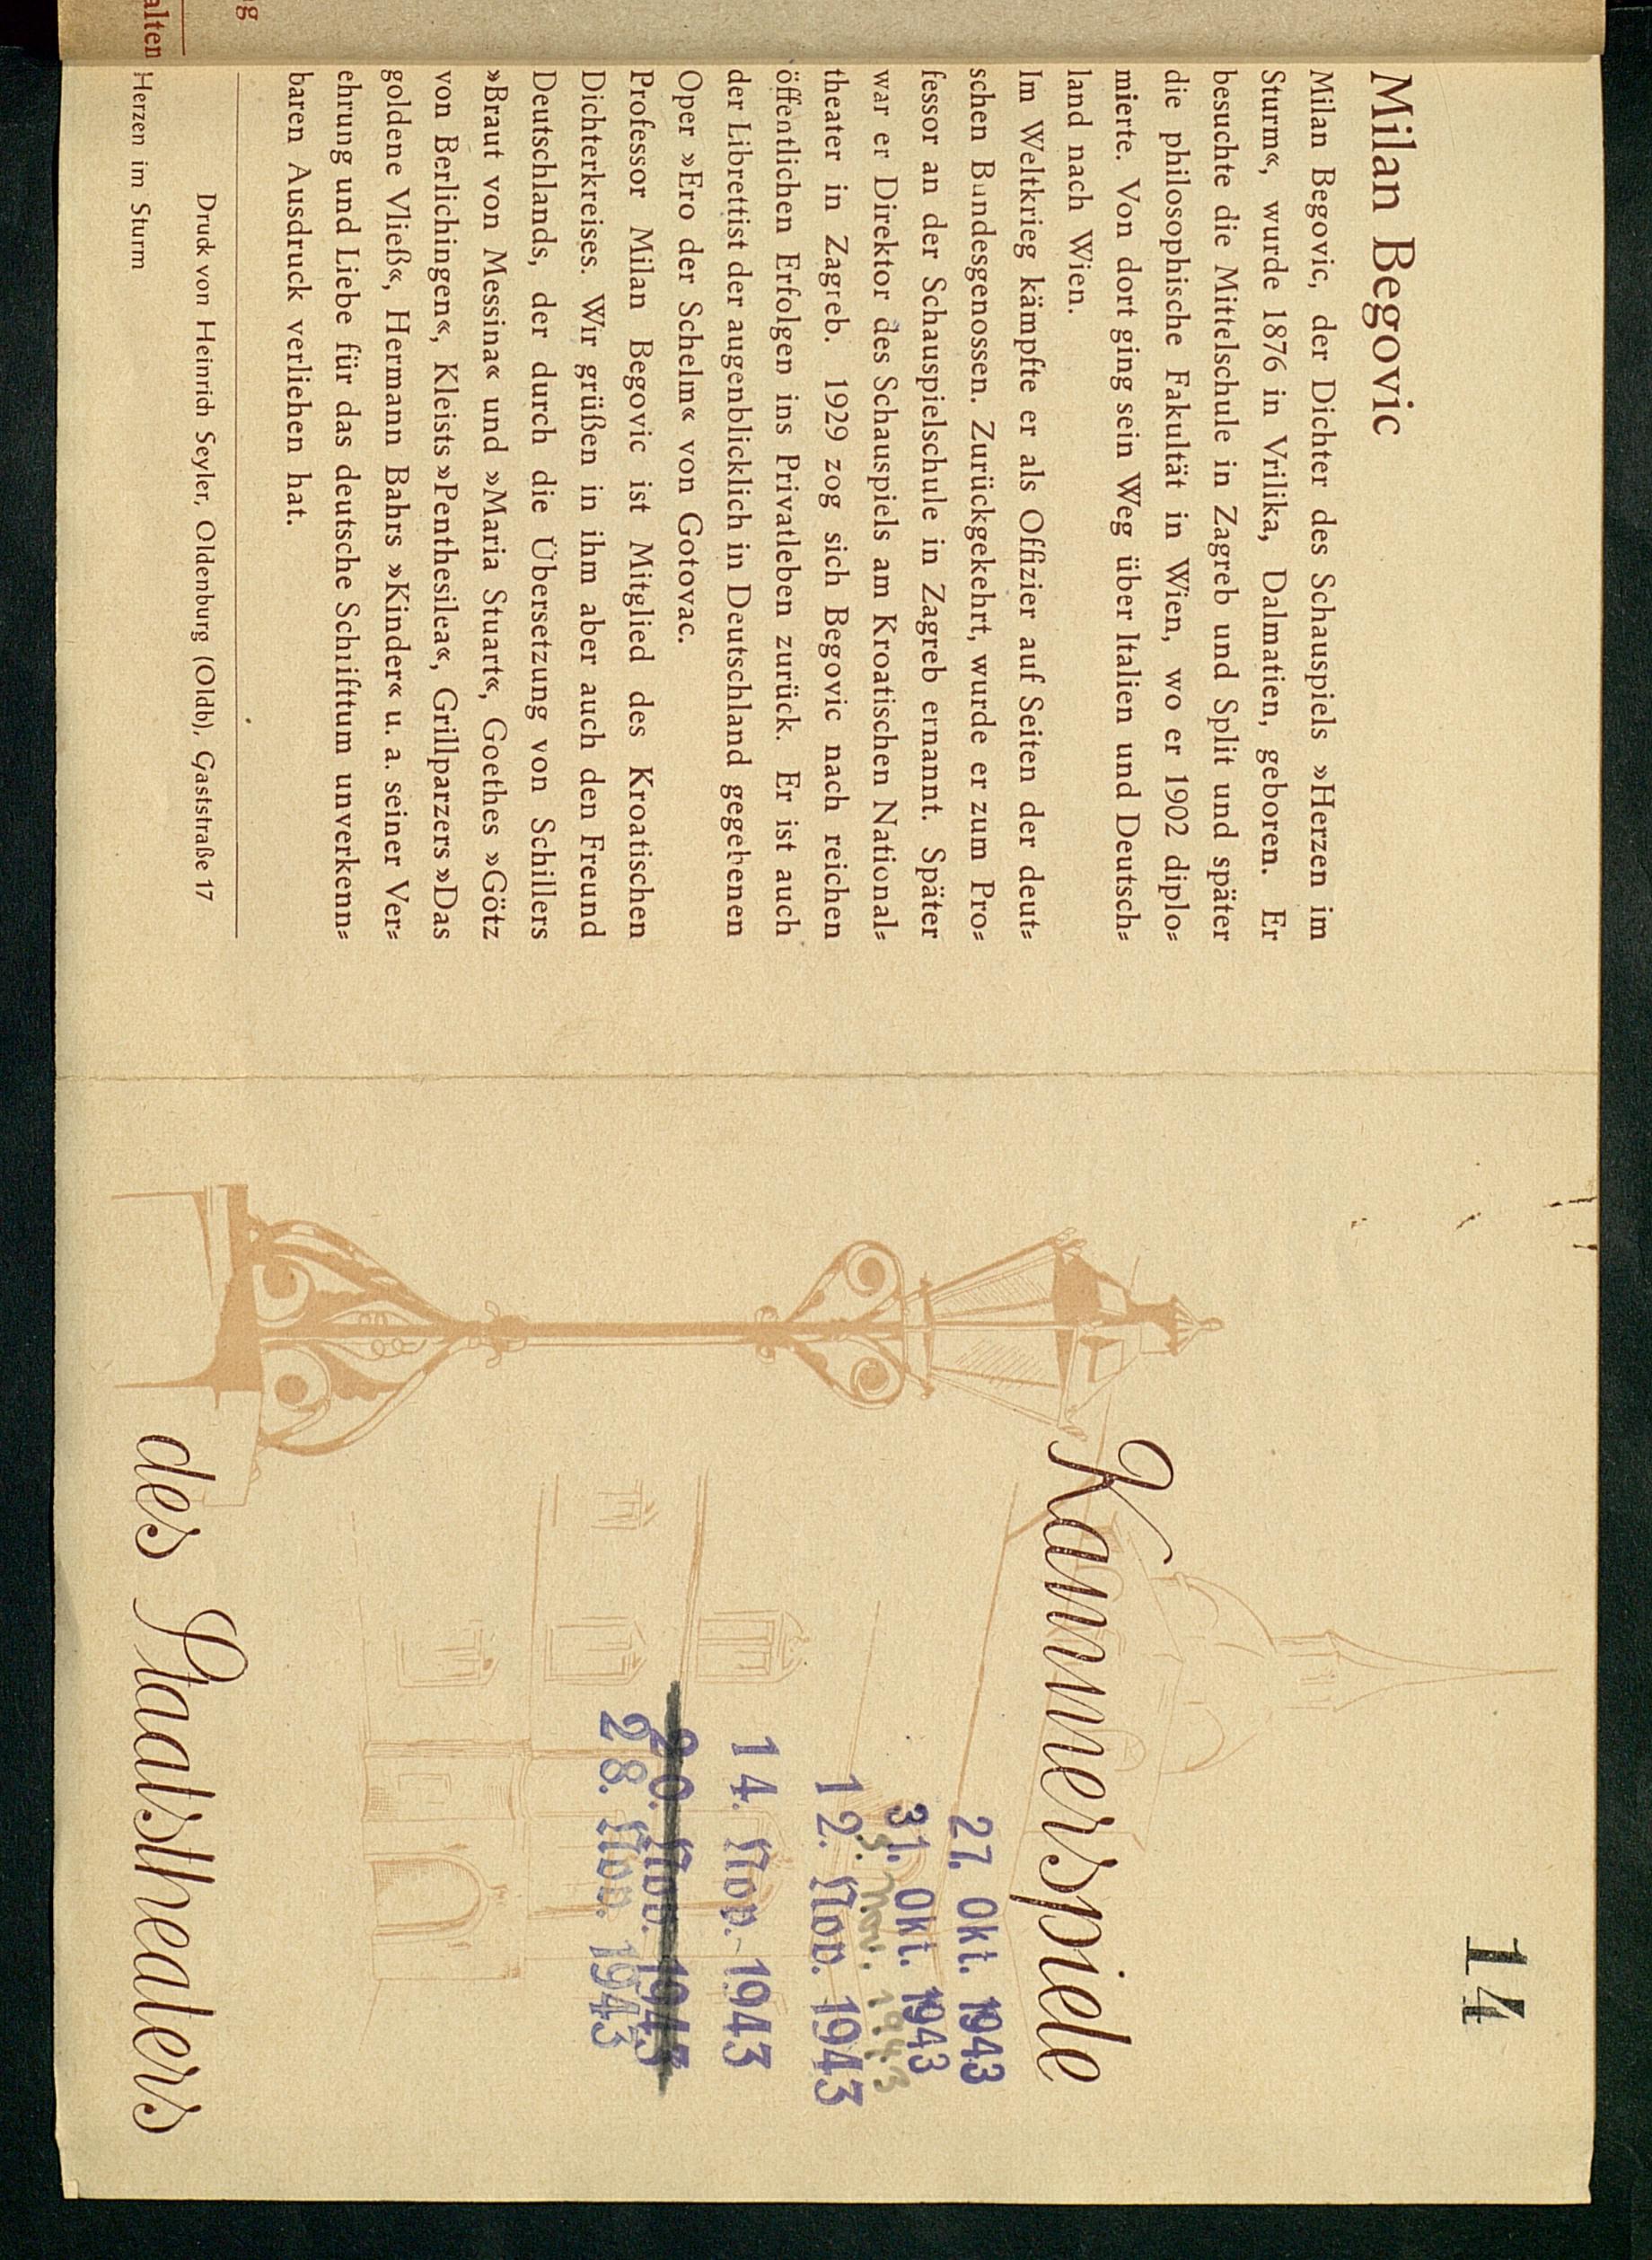 Milan Begovic
Milan Begovic, der Dichter des Schauspiels »Herzen im
Sturm«, wurde 1876 in Vrilika, Dalmatien, geboren. Er
besuchte die Mittelschule in Zagreb und Split und später
die philosophische Fakultät in Wien, wo er 1902 diplo⸗
mierte. Von dort ging sein Weg über Italien und Deutsch⸗
land nach Wien.
Im Weltkrieg kämpfte er als Offizier auf Seiten der deut⸗
schen Bundesgenossen. Zurückgekehrt, wurde er zum Pro⸗
fessor an der Schauspielschule in Zagreb ernannt. Später
war er Direktor des Schauspiels am Kroatischen National⸗
theater in Zagreb. 1929 zog sich Begovic nach reichen
öffentlichen Erfolgen ins Privatleben zurück. Er ist auch
der Librettist der augenblicklich in Deutschland gegebenen
Oper »Ero der Schelm« von Gotovac.
Professor Milan Begovic ist Mitglied des Kroatischen
Dichterkreises. Wir grüßen in ihm aber auch den Freund
Deutschlands, der durch die Übersetzung von Schillers
»Braut von Messina« und »Maria Stuart«, Goethes »Götz
von Berlichingen«, Kleists »Penthesilea«, Grillparzers »Das
goldene Vließ«, Hermann Bahrs »Kinder« u. a. seiner Ver⸗
ehrung und Liebe für das deutsche Schrifttum unverkenn⸗
baren Ausdruck verliehen hat.
Druck von Heinrich Seyler, Oldenburg (Oldb), Gaststraße 17
Herzen im Sturm
g
alten
14
Kammerspiele
27. Okt. 1943
31. Okt. 1943
3. Nov. 1943
12. Nov. 1943
14. Nov. 1943
20. Nov. 1943
28. Nov. 1943
des Staatstheaters